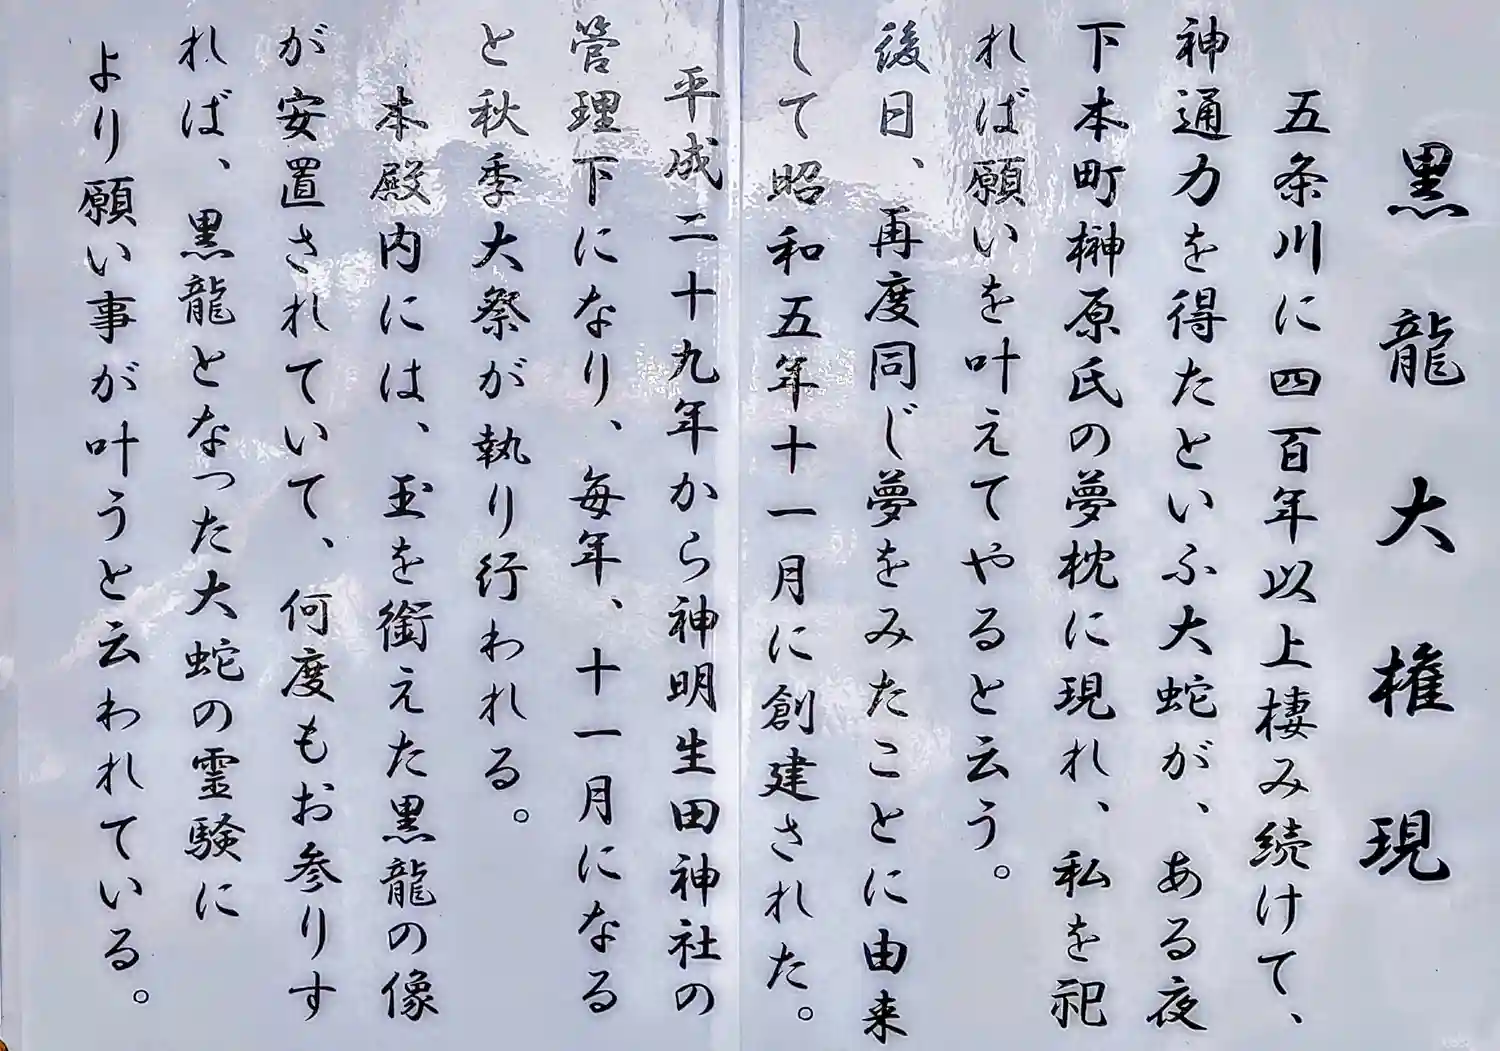 黒龍大権現
五条川に四百年以上棲み続けて、
神通力を得たといふ大蛇が、ある夜
下本町榊原氏の夢枕に現れ、私を祀
れば願いを叶えてやると云う。
後日、再度同じ夢をみたことに由来
して昭和五年十一月に創建された。
平成二十九年から神明生田神社の
管理下になり、毎年、十一月になる
と秋季大祭が執り行われる。
本殿内には、玉を銜えた黒龍の像
が安置されていて、何度もお参りす
れば、黒龍となった大蛇の霊験に
より願い事が叶うと云われている。